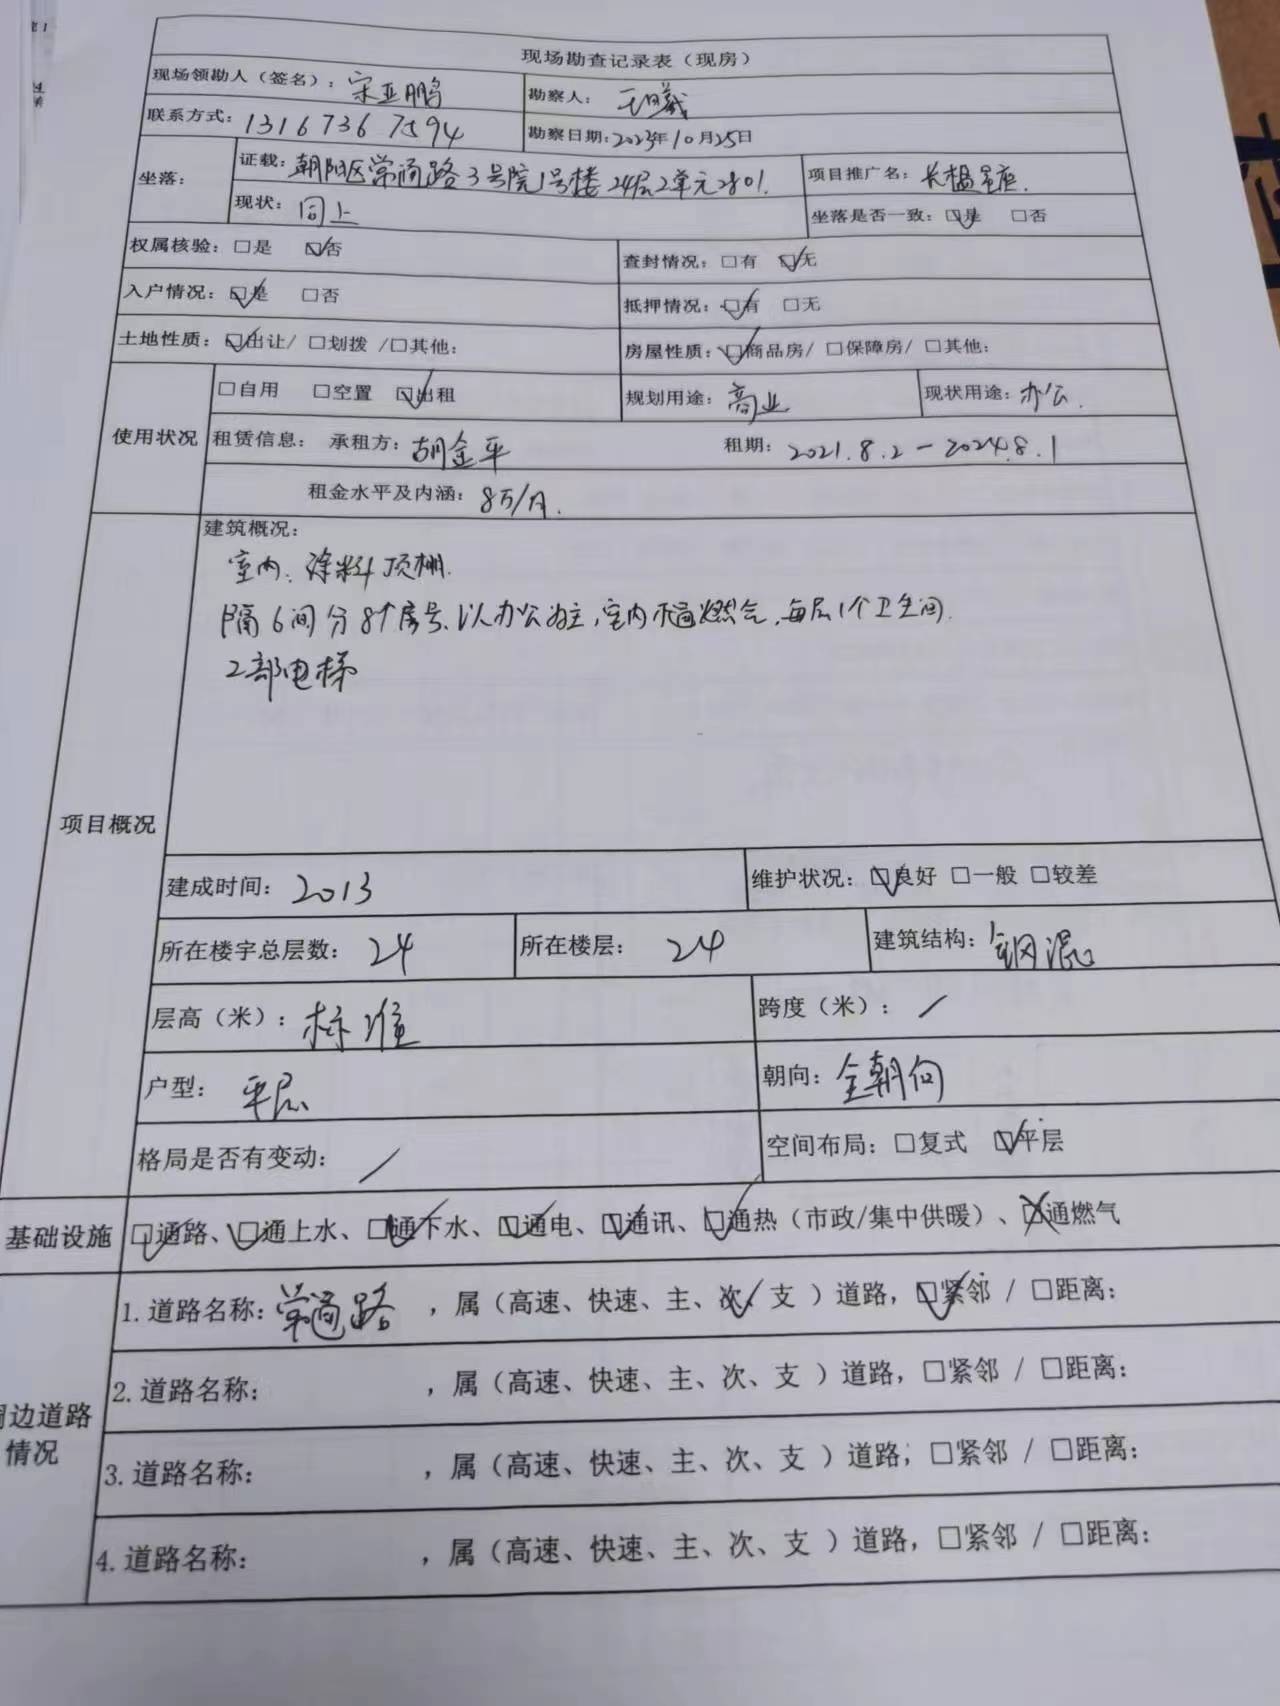 现场勘查记录表（现房）
现场领勘人（签名）：宋亚鹏 勘察人：王曦
联系方式：13167367594 勘察日期：2023年10月25日
坐落： 证载：朝阳区常通路3号院1号楼24层2单元2801. 项目推广名：长楹星座.
现状：同上 坐落是否一致：☑是 □否
权属核验：□是 ☑否 查封情况：□有 ☑无
入户情况：☑是 □否 抵押情况：☑有 □无
土地性质：☑出让/ □划拨 /□其他： 房屋性质：☑商品房/ □保障房/ □其他：
使用状况 □自用 □空置 ☑出租 规划用途：商业 现状用途：办公.
租赁信息： 承租方：胡金平 租期：2021.8.2-2024.8.1
租金水平及内涵：8万/月.
建筑概况：
室内：涂料顶棚.
隔6间分8个房号、以办公为主，室内不通燃气，每层1个卫生间.
2部电梯
项目概况
建成时间：2013 维护状况：☑良好 □一般 □较差
所在楼宇总层数：24 所在楼层：24 建筑结构：钢混
层高（米）：标准 跨度（米）：/
户型：平层 朝向：全朝向
格局是否有变动：/ 空间布局：□复式 ☑平层
基础设施 ☑通路、☑通上水、☑通下水、☑通电、☑通讯、☑通热（市政/集中供暖）、☒通燃气
1.道路名称：常通路 ，属（高速、快速、主、次、支 ）道路，☑紧邻 / □距离：
2.道路名称： ，属（高速、快速、主、次、支 ）道路，□紧邻 / □距离：
周边道路
情况
3.道路名称： ，属（高速、快速、主、次、支 ）道路，□紧邻 / □距离：
4.道路名称： ，属（高速、快速、主、次、支 ）道路，□紧邻 / □距离：